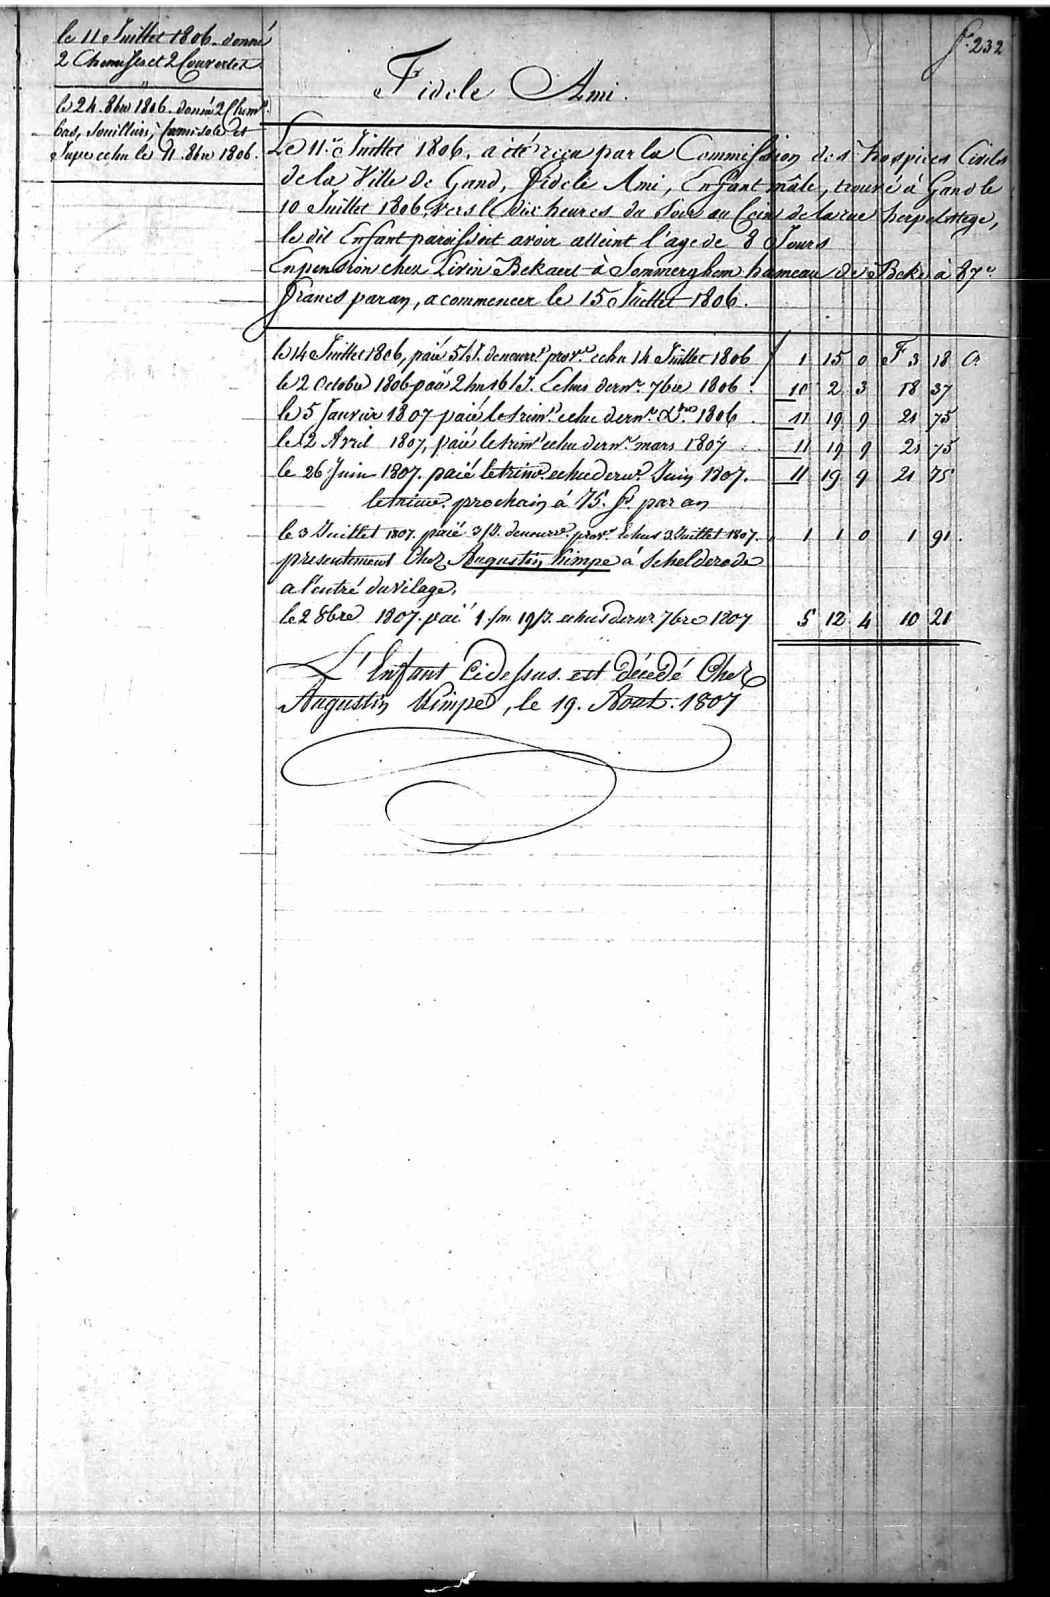 f.° 232
le 11 Juillet 1806 donné
2 Chemises et 2 Couvertes
le 24 8bre 1806 donné 2 Chem.s
bas, Souilliers, Camisole et
Jupe echu le 11 8bre 1806.
Fidele Ami.
Le 11.e Juillet 1806. a été reçu par la Commission des hospices Civils
de la Ville de Gand, Fidele Ami, Enfant mâle, trouvé à Gand le
10 Juillet 1806 vers le Dix heures du Soir au Coin de la rue herpelstege,
le dit Enfant paroissoit avoir atteint l'age de 8 Jours
En pension chez Livin Bekaert à Sommerghem hameau de Beke à 87
francs par an, a commencer le 15 Juillet 1806.
le 14 Juillet 1806, paié 5 J. de nourr.e prov.e echu 14 Juillet 1806 1 15 0 F 3 18 C.
le 2 Octobre 1806 paié 2 m 16 J. Echus dern.r 7bre 1806. 10 2 3 18 37
le 5 Janvier 1807 paié le trim.e echu dern.r Xbre 1806. 11 19 9 21 75
le 2 Avril 1807, paié le trim.e echu dern.r mars 1807 11 19 9 21 75
le 26 Juin 1807. paié le trim.e echu dern.r Juin 1807. 11 19 9 21 75
le trim.e prochain á 75. f. par an
le 3 Juillet 1807. paié 3 J. de nourr.e prov.e Echus 3 Juillet 1807. 1 1 0 1 91.
presentement Chez Augustin Kimpe á Schelderode
a l'entré du vilage.
le 2 8bre 1807. paié 1. m 19 J. echus dernr 7bre 1807 5 12 4 10 21
L'Enfant Cidessus est décedé Chez
Augustin Kimpe, le 19. Aout. 1807